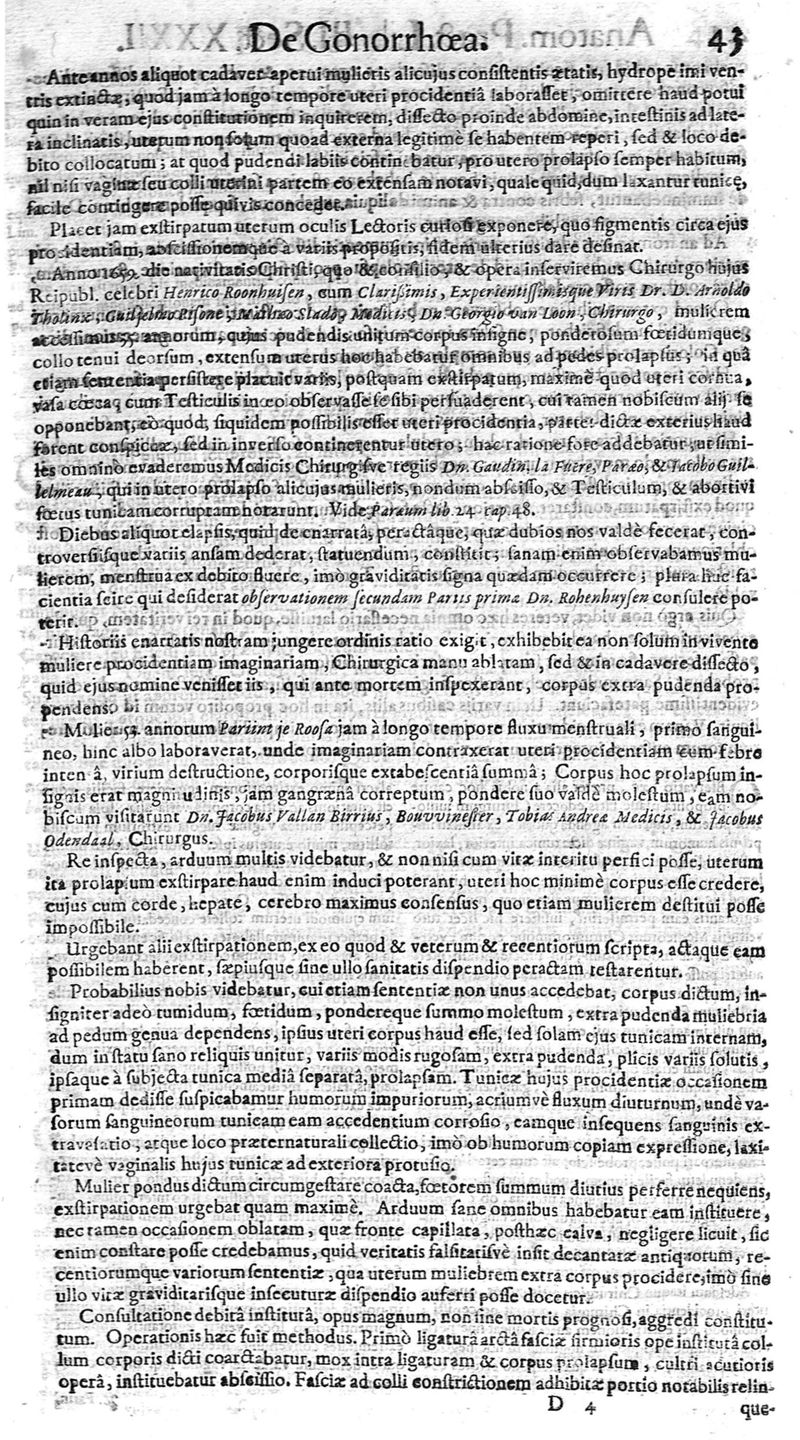 De Gonorrhœa. 43
Ante annos aliquot cadaver aperui mulieris alicujus consistentis ætatis, hydrope imi ven-
tris extinctæ, quod jam à longo tempore uteri procidentiâ laborasset, omittere haud potui
quin in veram ejus constitutionem inquirerem, dissecto proinde abdomine, intestinis ad late-
ra inclinatis, uterum non solum quoad externa legitimè se habentem reperi, sed & loco de-
bito collocatum; at quod pudendi labiis continebatur, pro utero prolapso semper habitum,
nil nisi vaginæ seu colli uterini partem eo extensam notavi, quale quid, dum laxantur tunicę,
facile contingere posse quivis concedet.
Placet jam exstirpatum uterum oculis Lectoris curiosi exponere, quo figmentis circa ejus
procidentiam, abscissionemque à variis propositis, fidem ulterius dare desinat.
Anno die nativitatis Christi, quo & consilio, & opera inserviremus Chirurgo hujus
Reipubl. celebri Henrico Roonhuisen, cum Clarißimis, Experientissimisque Viris Dr. D. Arnoldo
Tholinx, Guiljelmo Pisone, Matthæo Slado, Medicis, Dn. Georgio van Loon, Chirurgo, mulierem
accessimus annorum, cujus pudendis unitum corpus insigne, ponderosum fœtidumque,
collo tenui deorsum, extensum uterus hoc habebatur omnibus ad pedes prolapsus; id quâ
etiam sententia persistere placuit variis, postquam exstirpatum, maximè quod uteri cornua,
vasa cœcaq cum Testiculis in eo observasse se sibi persuaderent, cui tamen nobiscum alij se
opponebant, eò quòd, siquidem possibilis esset uteri procidentia, partes dictæ exterius haud
forent conspicuæ, sed in inverso continerentur utero; hac ratione fore addebatur, ut simi-
les omninò evaderemus Medicis Chirurgisve regiis Dn. Gaudin, la Fuere, Paræo, & Jacobo Guil-
lelmeau, qui in utero prolapso alicujus mulieris, nondum abscisso, & Testiculum, & abortivi
fœtus tunicam corruptam notarunt. Vide Paræum lib. 24. cap. 48.
Diebus aliquot elapsis, quid de enarratâ, peractâque, quæ dubios nos valdè fecerat, con-
troversiisque variis ansam dederat, statuendum, constitit; sanam enim observabamus mu-
lierem, menstrua ex debito fluere, imò graviditatis signa quædam occurrere; plura huc fa-
cientia scire qui desiderat observationem secundam Partis primæ Dn. Rohenhuysen consulere po-
terit.
Historiis enarratis nostram jungere ordinis ratio exigit, exhibebit ea non solum in vivente
muliere procidentiam imaginariam, Chirurgica manu ablatam, sed & in cadavere dissecto,
quid ejus nomine venisset iis, qui ante mortem inspexerant, corpus extra pudenda pro-
pendens.
Mulier 54. annorum Pariint je Roosa jam à longo tempore fluxu menstruali, primo sangui-
neo, hinc albo laboraverat, unde imaginariam contraxerat uteri procidentiam cum febre
intensâ, virium destructione, corporisque extabescentiâ summâ; Corpus hoc prolapsum in-
signis erat magnitudinis, jam gangrænâ correptum, pondere suo valdè molestum, eam no-
biscum visitarunt Dn. Jacobus Vallan Birrius, Bouvvinester, Tobias Andreæ Medicis, & Jacobus
Odendaal, Chirurgus.
Re inspecta, arduum multis videbatur, & non nisi cum vitæ interitu perfici posse, uterum
ita prolapsum exstirpare haud enim induci poterant, uteri hoc minimè corpus esse credere,
cujus cum corde, hepate, cerebro maximus consensus, quo etiam mulierem destitui posse
impossibile.
Urgebant alii exstirpationem, ex eo quod & veterum & recentiorum scripta, actaque eam
possibilem haberent, sæpiusque sine ullo sanitatis dispendio peractam testarentur.
Probabilius nobis videbatur, cui etiam sententiæ non unus accedebat, corpus dictum, in-
signiter adeò tumidum, fœtidum, pondereque summo molestum, extra pudenda muliebria
ad pedum genua dependens, ipsius uteri corpus haud esse, sed solam ejus tunicam internam,
dum in statu sano reliquis unitur, variis modis rugosam, extra pudenda, plicis variis solutis,
ipsaque à subjecta tunica mediâ separatâ, prolapsam. Tunicæ hujus procidentiæ occasionem
primam dedisse suspicabamur humorum impuriorum, acriumvè fluxum diuturnum, undè va-
sorum sanguineorum tunicam eam accedentium corrosio, eamque insequens sanguinis ex-
travasatio, atque loco præternaturali collectio, imò ob humorum copiam expressione, laxi-
tatevè vaginalis hujus tunicæ ad exteriora protusio.
Mulier pondus dictum circumgestare coacta, fœtorem summum diutius perferre nequiens,
exstirpationem urgebat quam maximè. Arduum sane omnibus habebatur eam instituere,
nec tamen occasionem oblatam, quæ fronte capillata, posthæc calva, negligere licuit, sic
enim constare posse credebamus, quid veritatis falsitatisvè insit decantatæ antiquorum, re-
centiorumque variorum sententiæ, qua uterum muliebrem extra corpus procidere, imò sine
ullo vitæ graviditatisque insecuturæ dispendio auferri posse docetur.
Consultatione debitâ institutâ, opus magnum, non sine mortis prognosi, aggredi constitu-
tum. Operationis hæc fuit methodus. Primò ligaturâ arctâ fasciæ firmioris ope institutâ col-
lum corporis dicti coarctabatur, mox intra ligaturam & corpus prolapsum, cultri acutioris
operâ, instituebatur abscissio. Fasciæ ad colli constrictionem adhibitæ portio notabilis relin-
D 4 que-